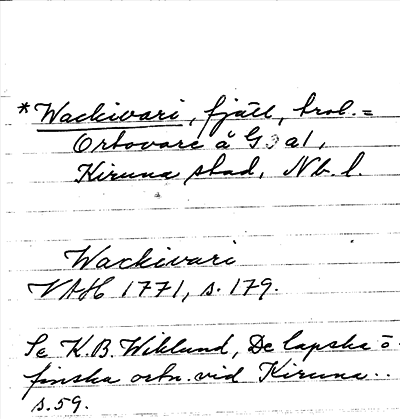 *Wackivari, fjäll, trol.=
Ortovare å G3a1,
Kiruna stad, Nb. l.
Wackivari
VAH 1771, s. 179.
Se K.B. Wiklund, De lapska o
finska ortn. vid Kiruna..
s. 59.